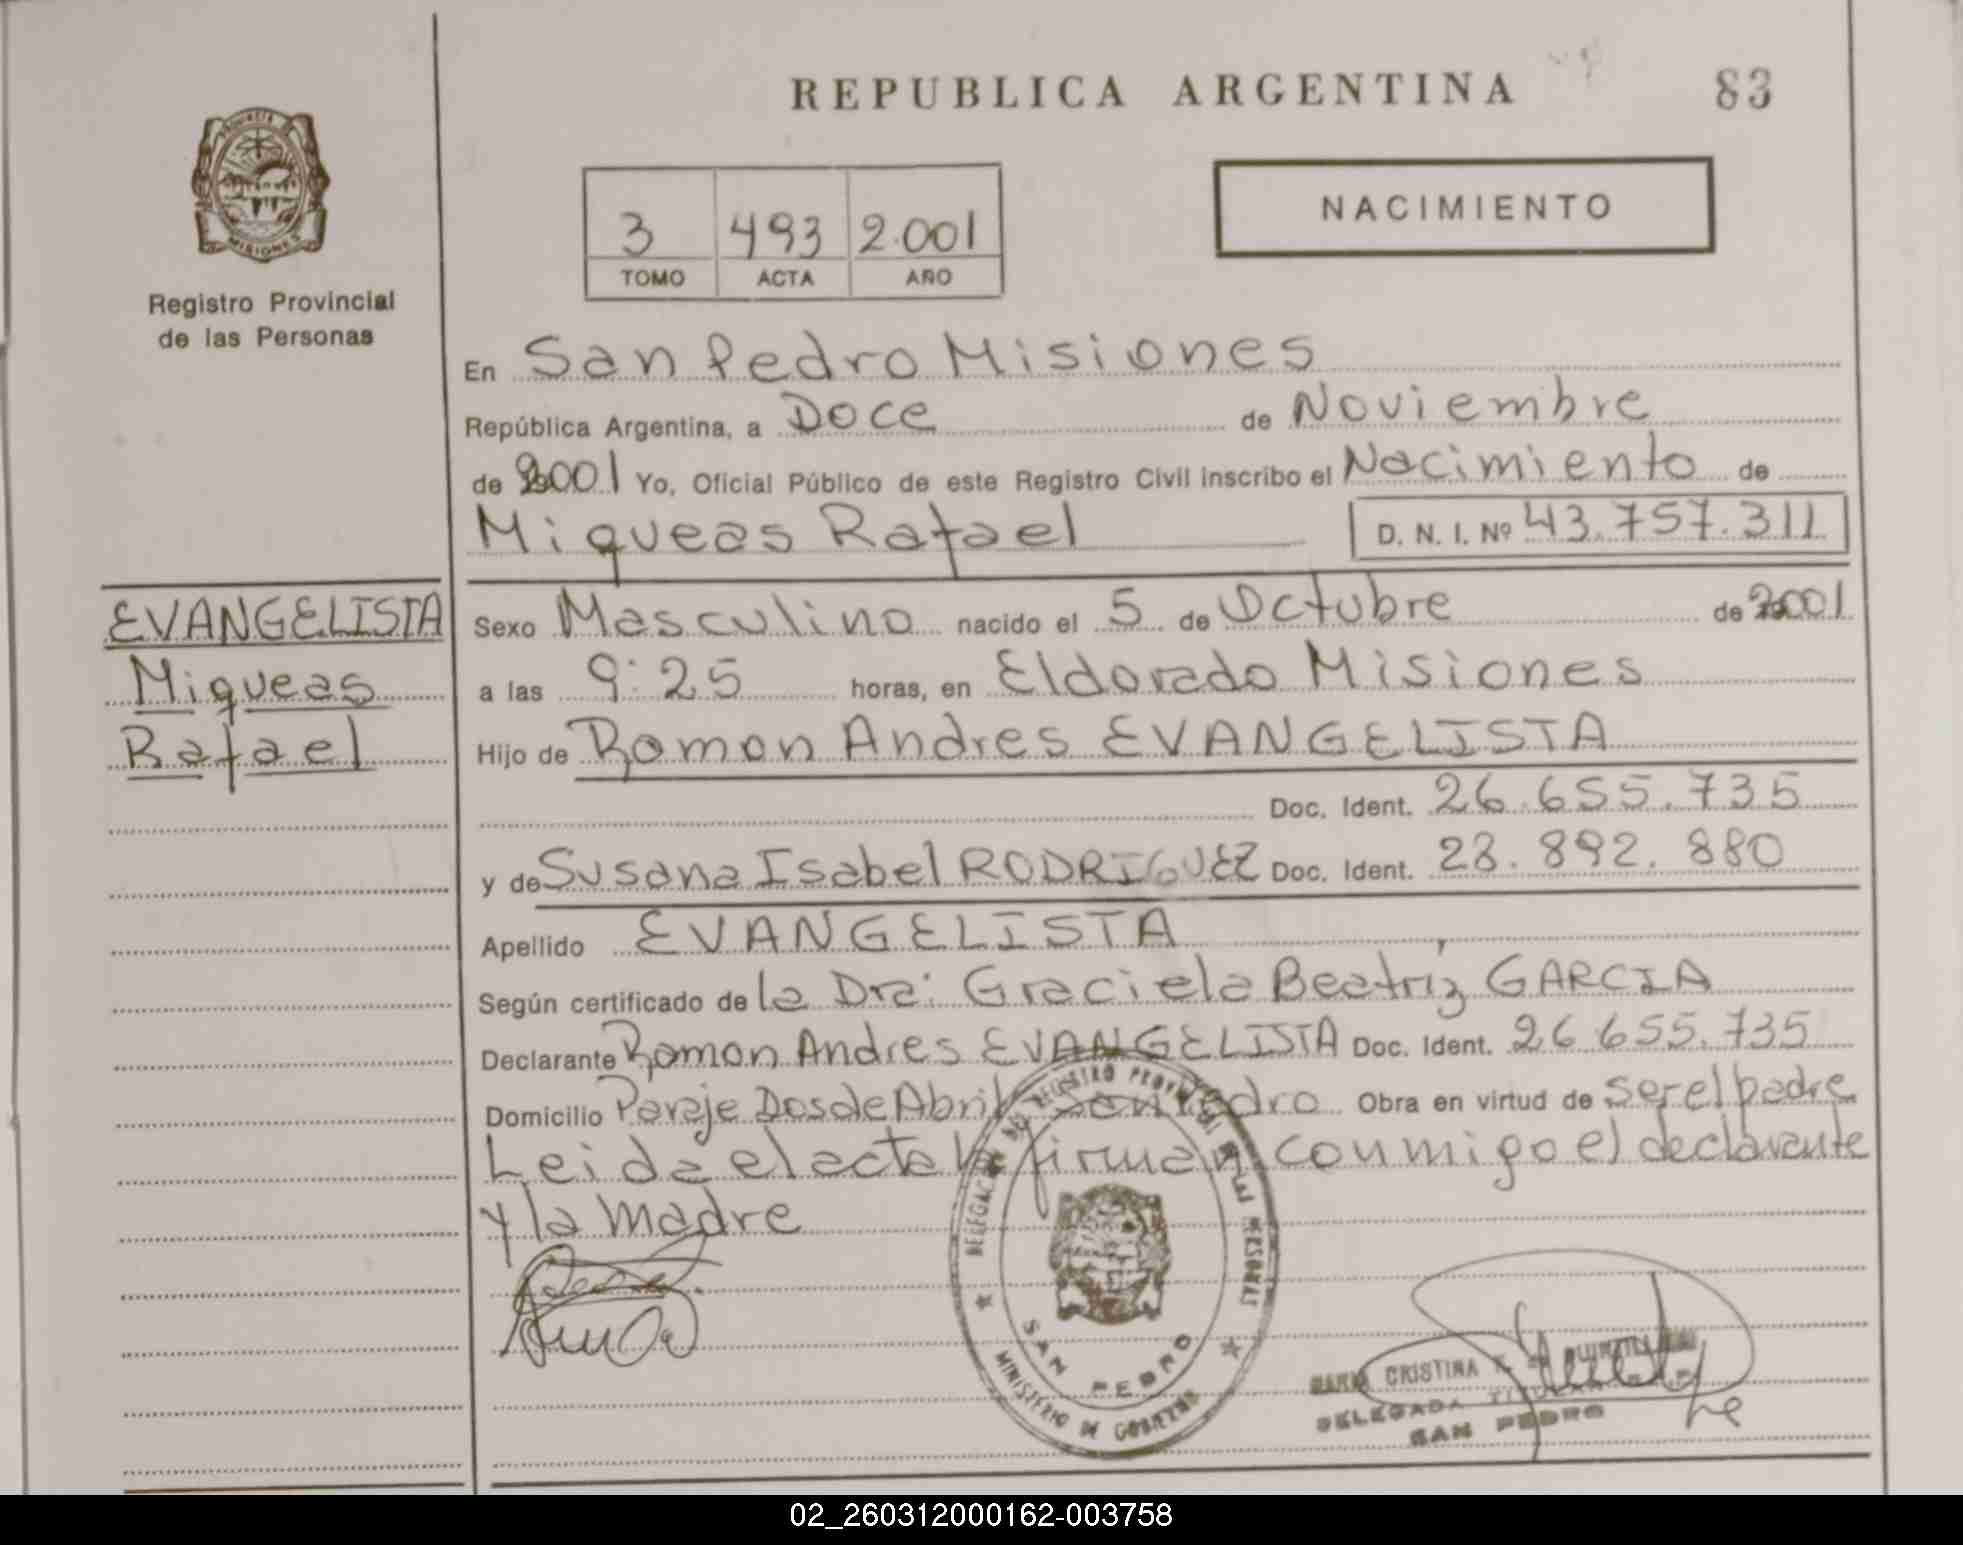 REPUBLICA ARGENTINA 83
PROVINCIA DE
MISIONES
Registro Provincial
de las Personas
3 493 2.001
TOMO ACTA AÑO
NACIMIENTO
En San Pedro Misiones
República Argentina, a Doce de Noviembre
de 2001 Yo, Oficial Público de este Registro Civil inscribo el Nacimiento de
Miqueas Rafael D. N. I. Nº 43.757.311
EVANGELISTA
Miqueas
Rafael
Sexo Masculino nacido el 5 de Octubre de 2001
a las 9:25 horas, en Eldorado Misiones
Hijo de Ramon Andres EVANGELISTA
Doc. Ident. 26.655.735
y de Susana Isabel RODRIGUEZ Doc. Ident. 23.892.880
Apellido EVANGELISTA
Según certificado de la Dra: Graciela Beatriz GARCIA
Declarante Ramon Andres EVANGELISTA Doc. Ident. 26.655.735
Domicilio Paraje Dos de Abril San Pedro Obra en virtud de ser el padre
Leida el acta la firman conmigo el declarante
y la madre
DELEGACION DEL REGISTRO PROVINCIAL DE LAS PERSONAS
SAN PEDRO
MINISTERIO DE GOBIERNO
MARIA CRISTINA
DELEGADA TITULAR
SAN PEDRO
02_260312000162-003758